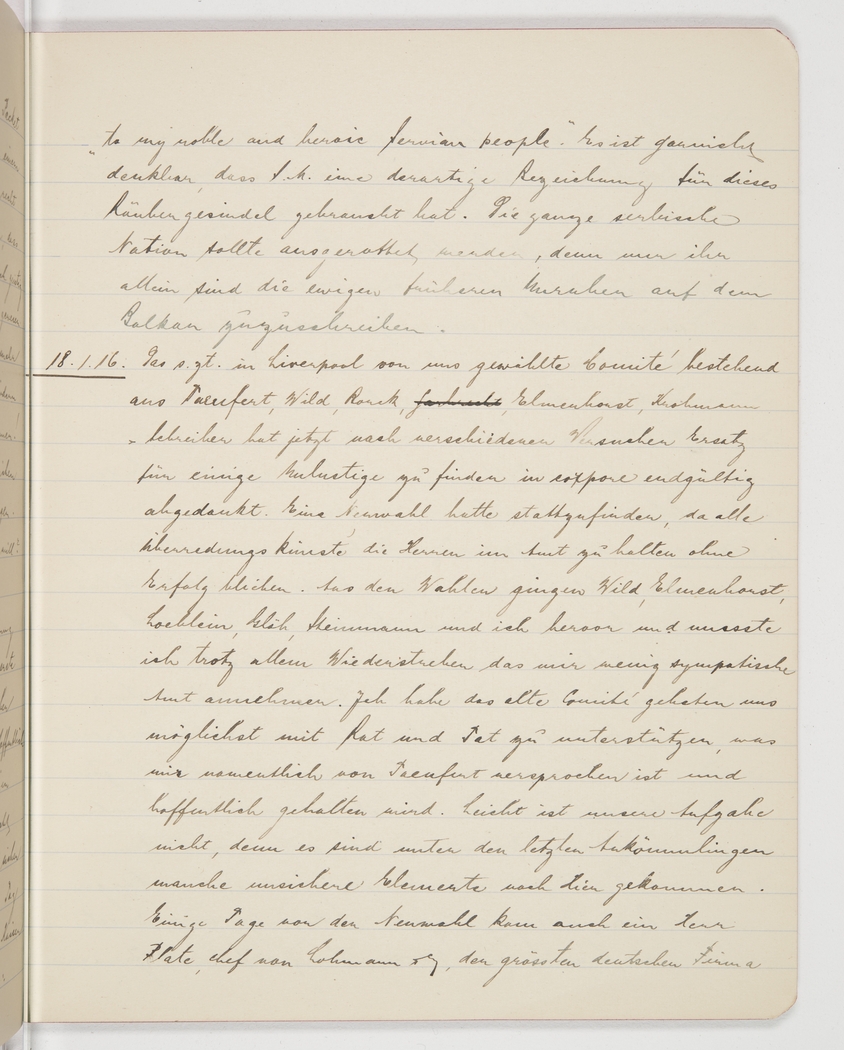 "to my noble and heroic Servian people". Es ist garnicht
denkbar, dass S.M. eine derartige Bezeichnung für dieses
Räubergesindel gebraucht hat. Die ganze serbische
Nation sollte ausgerottet werden, denn nur ihr
allein sind die ewigen früheren Unruhen auf dem
Balkan zuzuschreiben.
18.1.16. Das s.zt. in Liverpool von uns gewählte Comité bestehend
aus Taeufert, Wild, Ronck, Elmenhorst, Krohmann
Schreiber hat jetzt nach verschiedenen Versuchen Ersatz
für einige Unlustige zu finden in corpore endgültig
abgedankt. Eine Neuwahl hatte stattzufinden, da alle
Überredungskünste die Herren im Amt zu halten ohne
Erfolg blieben. Aus den Wahlen gingen Wild, Elmenhorst,
Loeblein, Heinmann und ich hervor und musste
ich trotz allem Wiederstreben das mir wenig sympatische
Amt annehmen. Ich habe das alte Comité gebeten uns
möglichst mit Rat und Tat zu unterstützen, was
mir namentlich von Taeufert versprochen ist und
hoffentlich gehalten wird. Leicht ist unsere Aufgabe
nicht, denn es sind unter den letzten Ankömmlingen
manche unsichere Elemente nach Hier gekommen.
Einige Tage vor der Neuwahl kam auch ein Herr
Plate, chef von Lohmann &Co, der grössten deutschen Firma